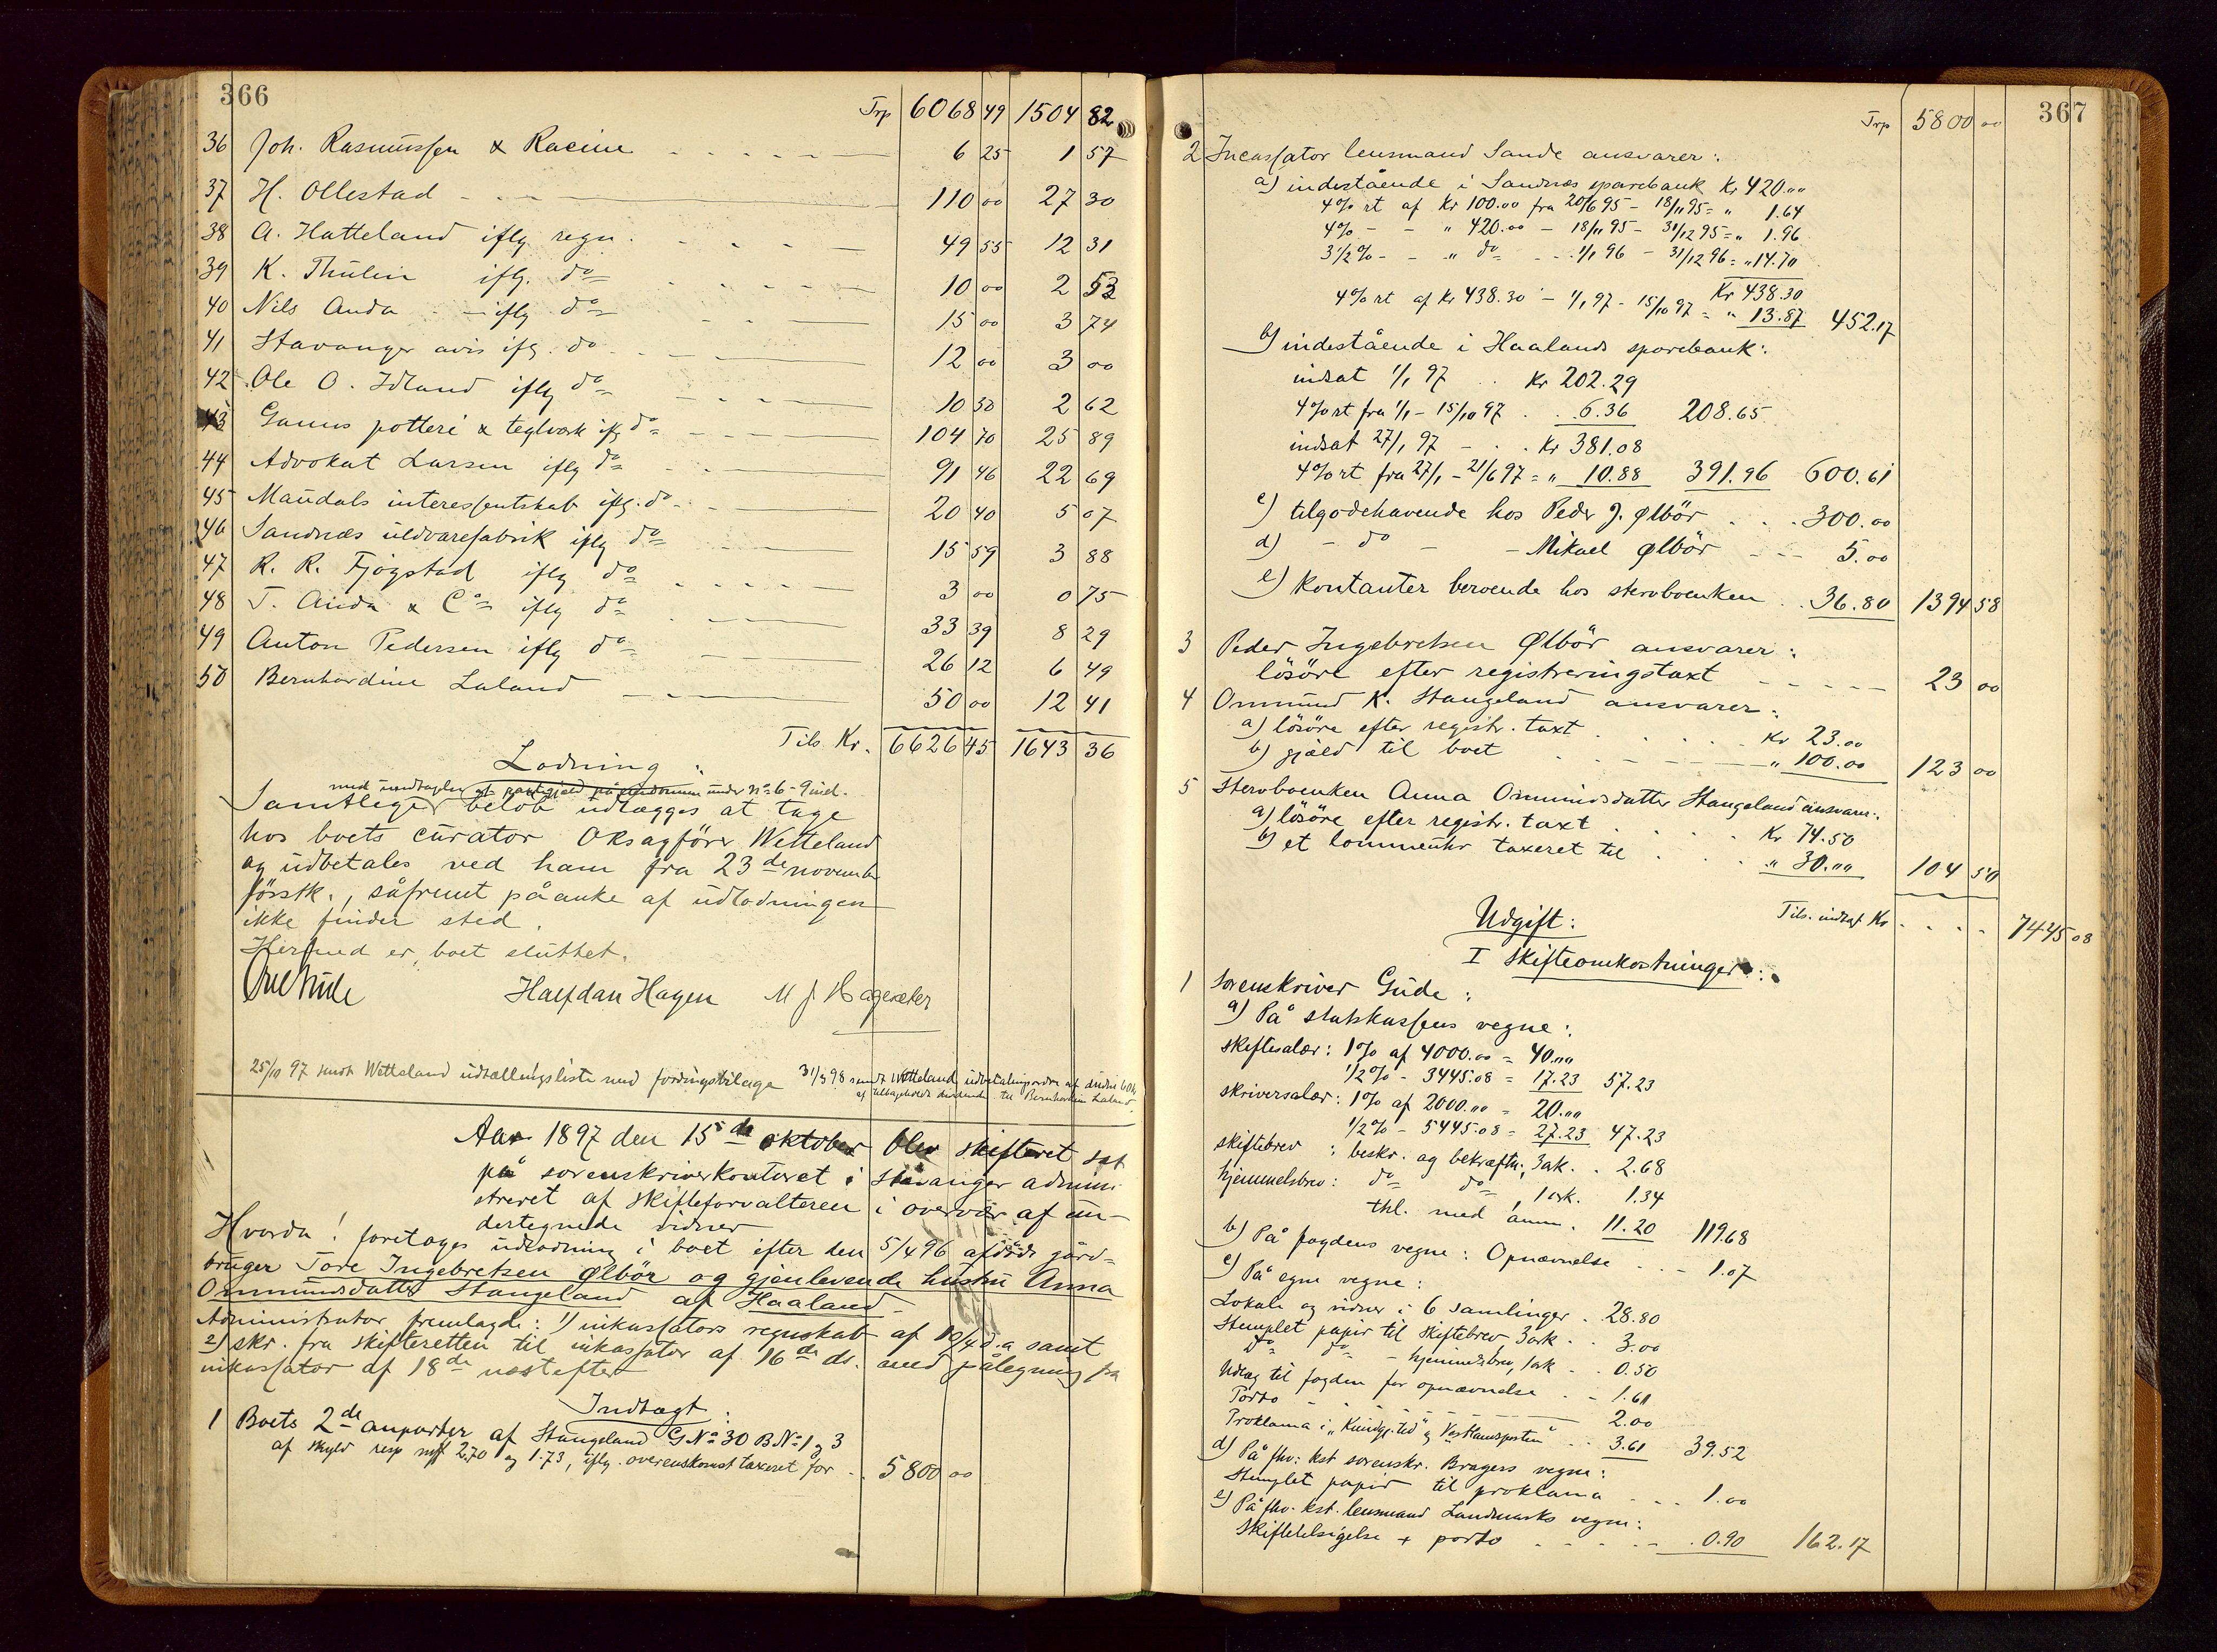 366
Trp 6068 49 1504 82
36 Joh. Rasmussen & Racine 6 25 1 57
37 H. Ollestad 110 00 27 30
38 A. Hatteland iflg regn. 49 55 12 31
39 K. Thulin iflg. do 10 00 2 53
40 Nils Anda iflg do 15 00 3 74
41 Stavanger avis iflg. do 12 00 3 00
42 Ole O. Idland iflg do 10 50 2 62
43 Ganns potteri & teglværk iflg do 104 70 25 89
44 Advokat Larsen iflg do 91 46 22 69
45 Maudals interessentskab iflg. do 20 40 5 07
46 Sandnæs uldvarefabrik iflg do 15 59 3 88
47 R. R. Fjogstad iflg do 3 00 0 75
48 T. Anda & Co iflg do 33 39 8 29
49 Anton Pedersen iflg do 26 12 6 49
50 Bernhardine Laland 50 00 12 41
Tils. Kr. 6626 45 1643 36
Lodning:
med undtagelse af pantgjæld på eiendommen under No 6-9 incl.
Samtlige beløb udlægges at tage
hos boets curator Oksagfører Wetteland
og udbetales ved ham fra 23de novembr
førstk., såfremt påanke af udlodningen
ikke finder sted.
Hermed er boet sluttet.
Halfdan Hagen M J Hagesæter
25/10 97 sendt Wetteland udtællingsliste med fordringsbilage 31/3 98 sendt Wetteland udbetalingsordre
af tilbageholdt dividende til Bernhardine Laland
Aar 1897 den 15de oktober blev skifteret sat
på sorenskriverkontoret i Stavanger admini-
streret af skifteforvalteren i overvær af un-
dertegnede vidner
Hvorda! foretoges udlodning i boet efter den 5/4 96 afdøde gård-
bruger Tore Ingebretsen Ølbör og gjenlevende hustru Anna
Ommundsdatter Stangeland af Haaland.
Administrator fremlagde: 1) inkassators regnskab af 10/4 d.a. samt
2) skr. fra skifteretten til inkassator af 16de ds. med pålegning fra
inkassator af 18de næstefter
Indtægt:
1 Boets 2de anparter af Stangeland G No 30 B No 1 og 3
af skyld resp mk 2.70 og 1.73, iflg. overenskomst taxeret for 5800 00
367
Trp 5800 00
2 Incassator lensmand Sande ansvarer:
a) indestående i Sandnæs sparebank Kr 420.00
4% rt af Kr 100.00 fra 20/6 95 - 18/11 95 = " 1.64
4% - - " 420.00 - 18/11 95 - 31/12 95 = " 1.96
3 1/2 % - - " do - - 1/1 96 - 31/12 96 = " 14.70
Kr 438.30
4% rt af Kr 438.30 - 1/1 97 - 15/10 97 = " 13.87 452.17
b) indestående i Haalands sparebank:
indsat 1/1 97 . . Kr 202.29
4% rt fra 1/1 - 15/10 97 . . 6.36 208.65
indsat 27/1 97 - . . Kr 381.08
4% rt fra 27/1 - 21/6 97 = " 10.88 391.96 600.61
c) tilgodehavende hos Peder J. Ølbör . . . 300.00
d) - do - - Mikael Ølbör - - - 5.00
e) kontanter beroende hos stervboenken . . 36.80 1394 58
3 Peder Ingebretsen Ølbör ansvarer:
lösöre efter registreringstaxt 23 00
4 Ommund K. Stangeland ansvarer:
a) lösöre efter registr. taxt Kr 23.00
b) gjæld til boet " 100.00 123 00
5 Stervboenken Anna Ommundsdatter Stangeland ansvarer:
a) lösöre efter registr. taxt Kr 74.50
b) et lommeuhr taxeret til " 30.00 104 50
Tils. indtægt Kr 7445 08
Udgift:
I Skifteomkostninger:
1 Sorenskriver Gude:
a) På statskassens vegne:
skiftesalær: 1% af 4000.00 = 40.00
1/2% - 3445.08 = 17.23 57.23
skriversalær: 1% af 2000.00 = 20.00
1/2% - 5445.08 = 27.23 47.23
skiftebrev: beskr. og bekræftn., 3 ark. . 2.68
hjemmelsbrev: do do, 1 ark. 1.34
thl. med anm. 11.20 119.68
b) På fogdens vegne: Opnævnelse . . - 1.07
c) På egne vegne:
Lokale og vidner i 6 samlinger . 28.80
Stemplet papir til skiftebrev, 3 ark . . 3.00
do do - hjemmelsbrev, 1 ark . . 0.50
Udlæg til fogden for opnævnelse . - 1.61
Porto 2.00
Proklama i "Kundgj. tid" og "Vestlandsposten" . . 3.61 39.52
d) På fhv. kst sorenskr. Bragers vegne:
Stemplet papir til proklama . . . 1.00
e) På fhv. kst. lensmand Landmarks vegne:
Skiftetilsigelse + porto 0.90 162.17